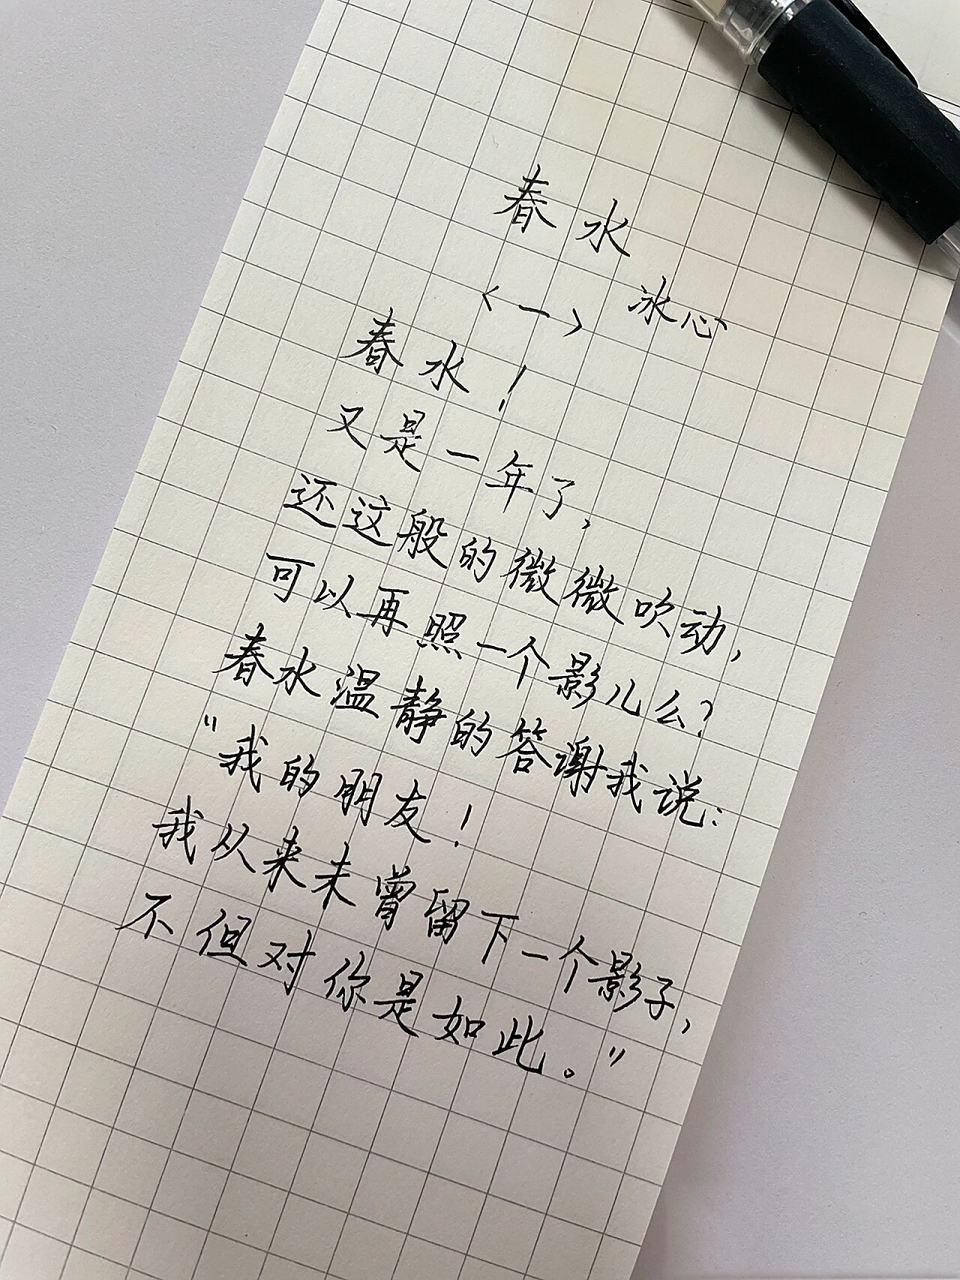 春水
<一> 冰心
春水！
又是一年了，
还这般的微微吹动，
可以再照一个影儿么？
春水温静的答谢我说：
“我的朋友！
我从来未曾留下一个影子，
不但对你是如此。”